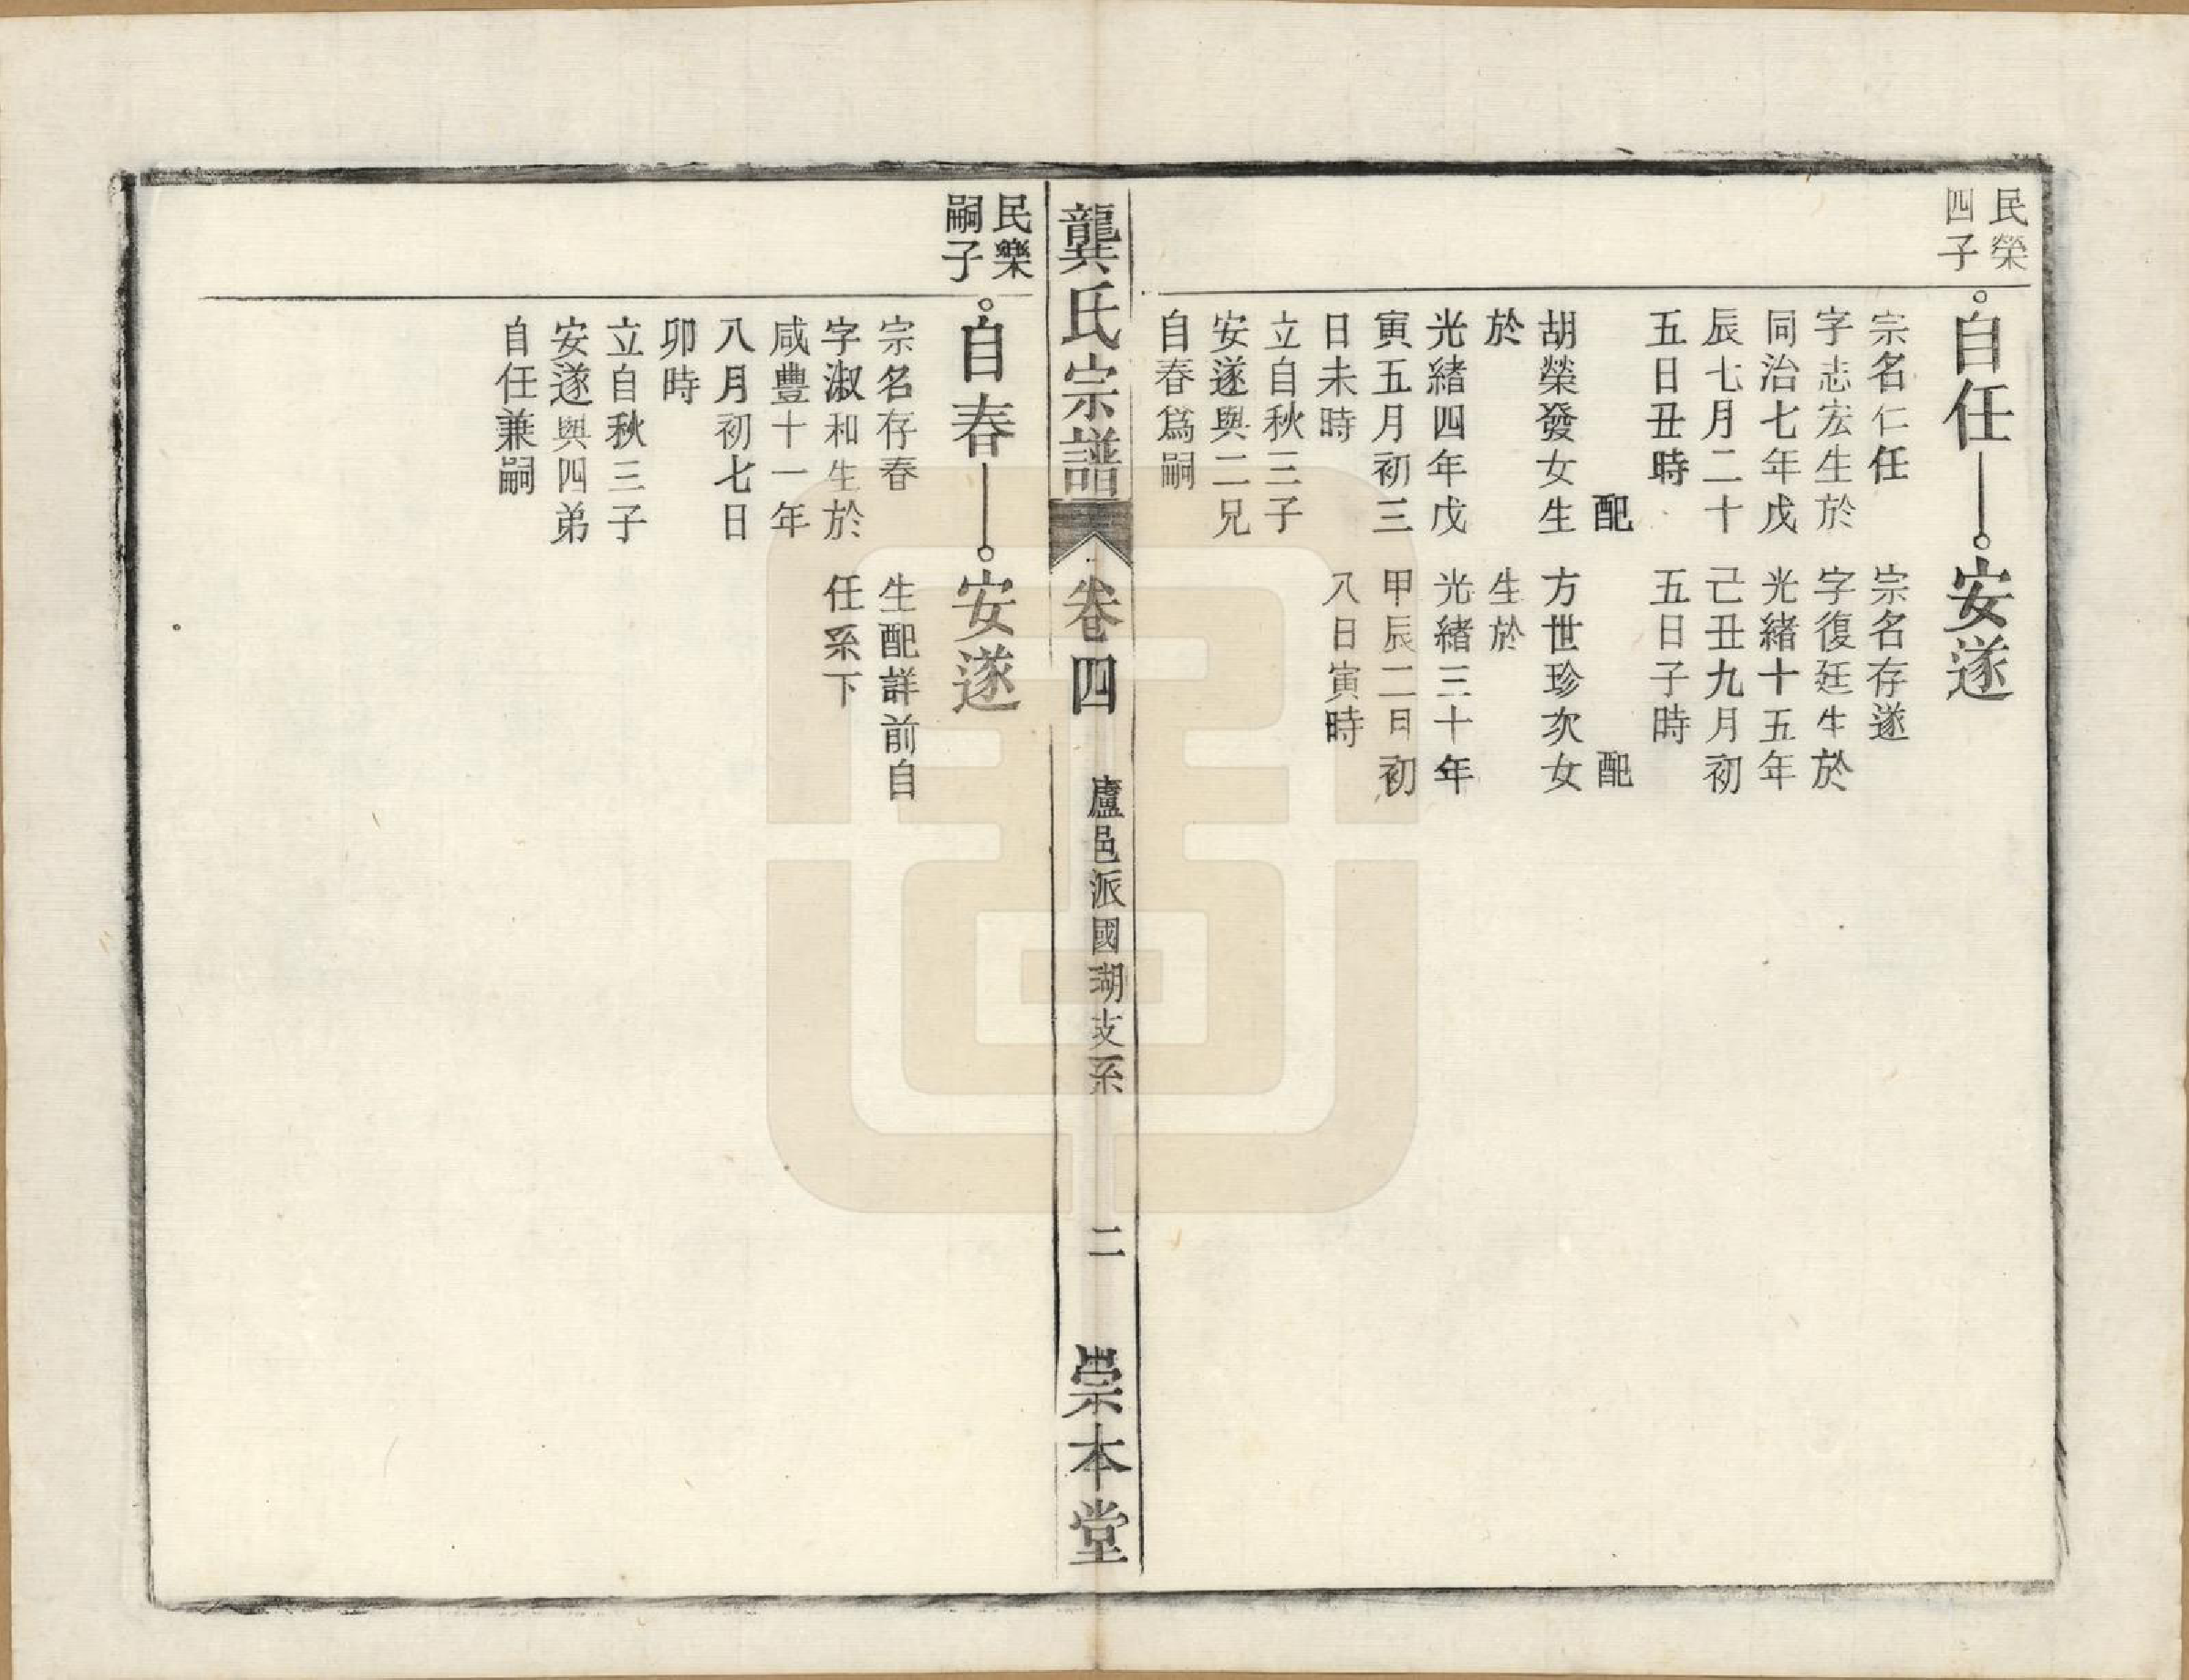 民榮
四子
自任
宗名仁任
字志宏生於
同治七年戊
辰七月二十
五日丑時
配
胡榮發女生
於
光緒四年戊
寅五月初三
日未時
立自秋三子
安遂與二兄
自春爲嗣
安遂
宗名存遂
字復廷生於
光緒十五年
己丑九月初
五日子時
配
方世珍次女
生於
光緒三十年
甲辰二日初
八日寅時
龔氏宗譜
卷四
廬邑派國瑚支系
二
崇本堂
民樂
嗣子
自春
宗名存春
字淑和生於
咸豐十一年
八月初七日
卯時
立自秋三子
安遂與四弟
自任兼嗣
安遂
生配詳前自
任系下